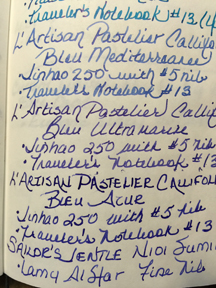 Traveler's Notebook #13 (4
L'Artisan Pastelier Callifo
Bleu Mediterraneé
• Jinhao 250 with #5 nib
• Traveler's Notebook #13
L'Artisan Pastelier Callifo
Bleu Ultramarine
• Jinhao 250 with #5 nib
• Traveler's Notebook #13
L'ARTISAN PASTELIER CALLIFOL
BLEU AZUR
• Jinhao 250 with #5 nib
• Traveler's Notebook #13
SAILOR'S JENTLE Sumi
• Lamy Al Star Fine Nib